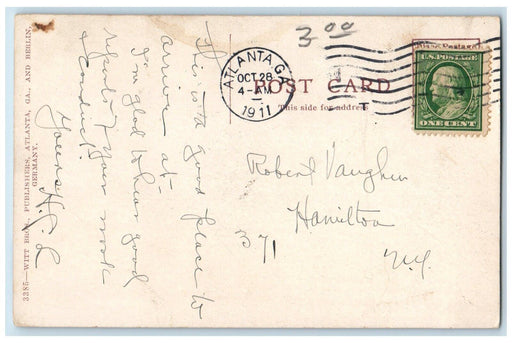 3 00
ATLANTA, GA.
OCT 28
4-AM
1911
POST CARD
This side for address
Place Postage
U.S. POSTAGE
ONE CENT
This is a good place to
arrive at.
I'm glad to hear good
reports of your work
& conduct.
Yours H. J. L
Robert Vaughn
Hamilton
371
N.Y.
3385—WITT BROS., PUBLISHERS, ATLANTA, GA., AND BERLIN,
GERMANY.